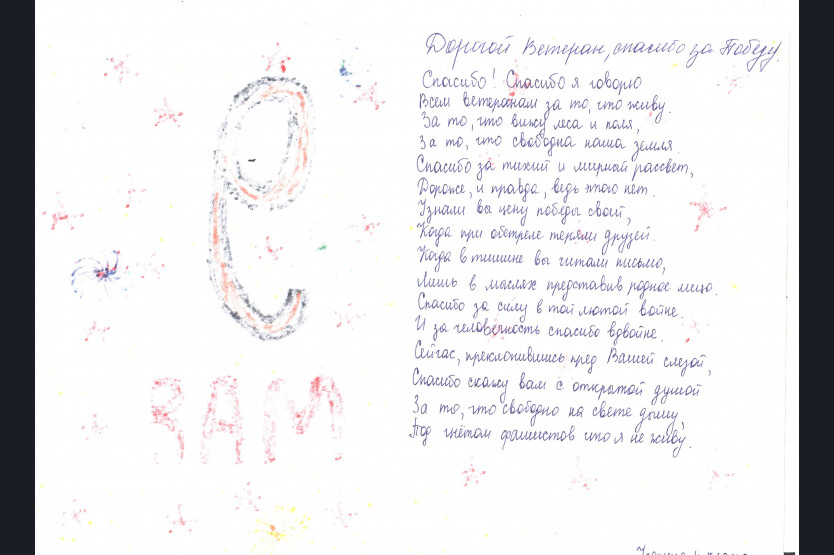 Дорогой Ветеран, спасибо за Победу.
Спасибо! Спасибо я говорю
Всем ветеранам за то, что живу.
За то, что вижу леса и поля,
За то, что свободна наша земля.
Спасибо за тихий и мирный рассвет,
Дороже, и правда, ведь этого нет.
Узнали вы цену победы своей,
Когда при обстреле теряли друзей.
Когда в тишине вы читали письмо,
Лишь в мыслях представив родное лицо.
Спасибо за силу в той лютой войне.
И за человечность спасибо вдвойне.
Сейчас, преклонившись пред Вашей слезой,
Спасибо скажу вам с открытой душой
За то, что свободно на свете дышу,
Под гнётом фашистов что я не живу.
9
МАЯ